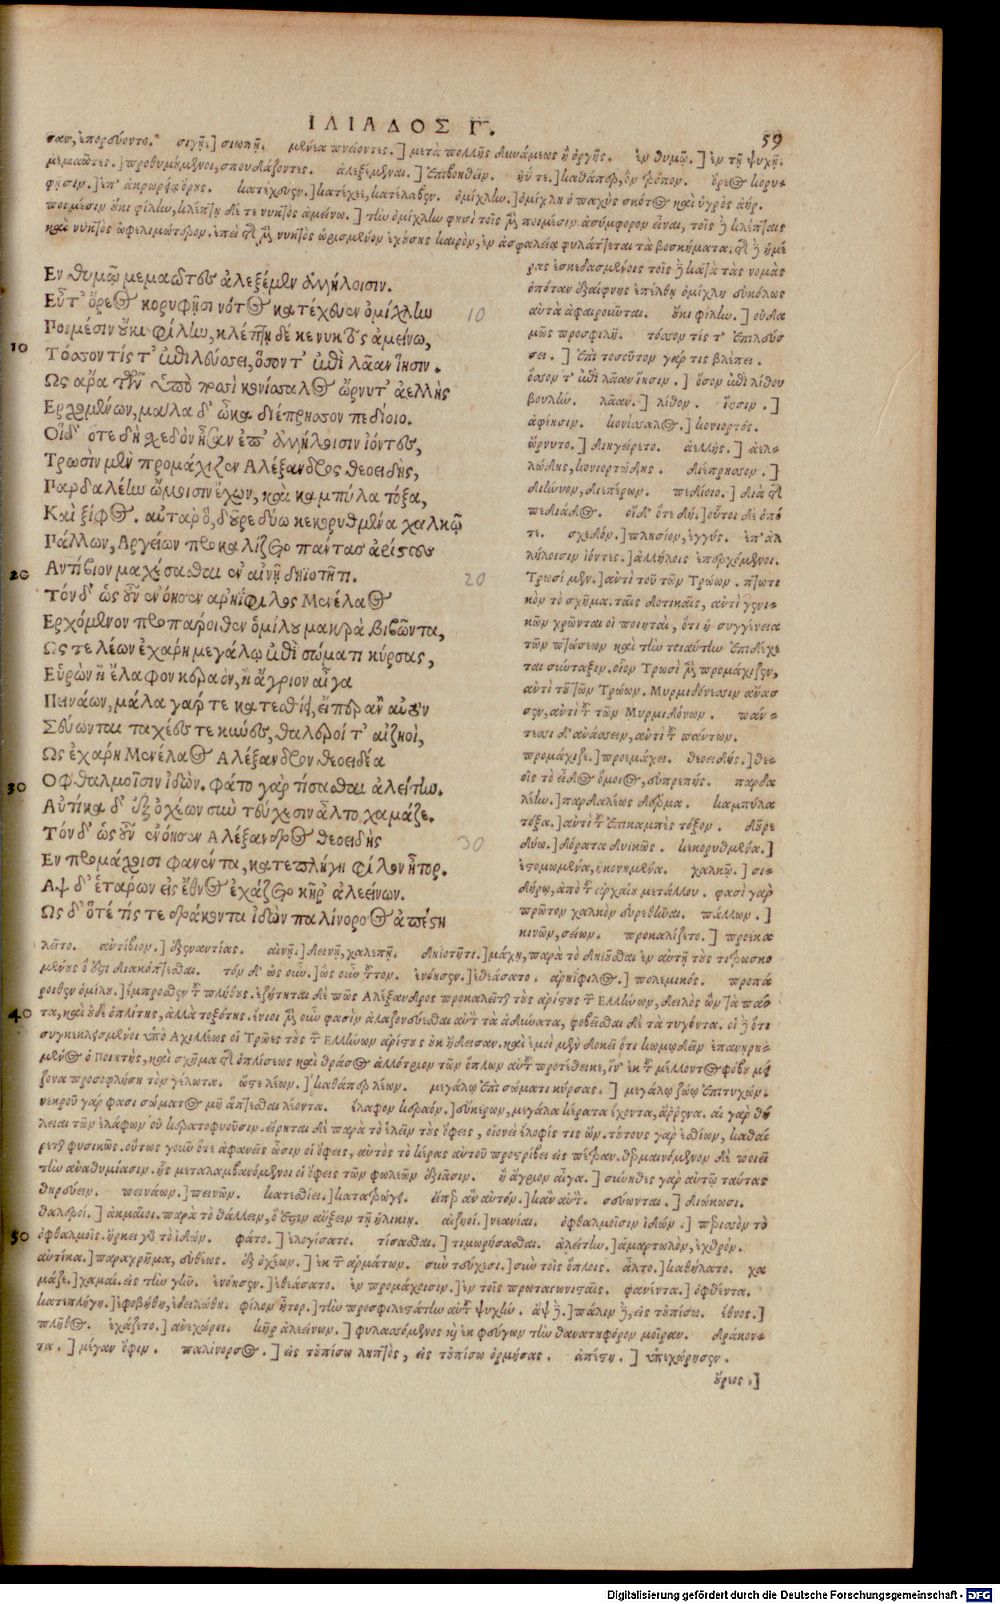 ΙΛΙΑΔΟΣ Γ.
59
σαν, ἐπορεύοντο. σιγῇ.] σιωπῇ. μένεα πνείοντες.] μετὰ πολλῆς δυνάμεως ἢ ὀργῆς. ἐν θυμῷ.] ἐν τῇ ψυχῇ.
μεμαῶτες.] προθυμούμενοι, σπουδάζοντες. ἀλεξέμεναι.] ἐπιβοηθεῖν. ηὖτε.] καθάπερ, ὃν τρόπον. ὄρεος κορυ-
φῇσιν.] ἐπ' ἀκρωρείαις ὄρους. κατέχευεν.] κατέχεε, κατέλαβεν. ὀμίχλην.] ὀμίχλη ὁ παχὺς σκότος καὶ ὑγρὸς ἀήρ.
ποιμέσιν οὔκι φίλην, κλέπτῃ δέ τε νυκτὸς ἀμείνω.] τὴν ὀμίχλην φησὶ τοῖς μὲν ποιμέσιν ἀσύμφορον εἶναι, τοῖς δὲ κλέπταις
καὶ νυκτὸς ὠφελιμώτερον. ἐπεὶ τῆς μὲν νυκτὸς ὡρισμένον ἐχούσης καιρὸν, ἐν ἀσφαλείᾳ φυλάττεται τὰ βοσκήματα. τῆς δὲ ἡμέ
Εν θυμῷ μεμαῶτες ἀλεξέμεν ἀλλήλοισιν.
Εὖτ' ὄρεος κορυφῇσι νότος κατέχευεν ὀμίχλην
Ποιμέσιν οὔκι φίλην, κλέπτῃ δέ κε νυκτὸς ἀμείνω,
10
Τόσσον τίς τ' ἐπιλεύσσει, ὅσον τ' ἐπὶ λᾶαν ἵησιν.
Ως ἄρα τῶν ὑπὸ ποσσὶ κονίσσαλος ὤρνυτ' ἀελλὴς
Ερχομένων, μάλα δ' ὦκα διέπρησσον πεδίοιο.
Οἱ δ' ὅτε δὴ σχεδὸν ἦσαν ἐπ' ἀλλήλοισιν ἰόντες,
Τρωσὶν μὲν προμάχιζεν Αλέξανδρος θεοειδής,
Παρδαλέην ὤμοισιν ἔχων, καὶ καμπύλα τόξα,
Καὶ ξίφος. αὐτὰρ ὅ, δοῦρε δύω κεκορυθμένα χαλκῷ
Πάλλων, Αργείων προκαλίζετο πάντας ἀρίστους
20
Αντίβιον μαχέσασθαι ἐν αἰνῇ δηϊοτῆτι.
20
Τὸν δ' ὡς οὖν ἐνόησεν ἀρηΐφιλος Μενέλαος
Ερχόμενον προπάροιθεν ὁμίλου μακρὰ βιβῶντα,
Ως τε λέων ἐχάρη μεγάλῳ ἐπὶ σώματι κύρσας,
Εὑρὼν ἢ ἔλαφον κεραὸν, ἢ ἄγριον αἶγα
Πεινάων, μάλα γάρ τε κατεσθίει, εἴπερ ἂν αὐτὸν
Σεύωνται ταχέες τε κύνες, θαλεροί τ' αἰζηοί,
Ως ἐχάρη Μενέλαος Αλέξανδρον θεοειδέα
30
Οφθαλμοῖσιν ἰδών. φάτο γὰρ τίσασθαι ἀλείτην.
Αὐτίκα δ' ἐξ ὀχέων σὺν τεύχεσιν ἆλτο χαμᾶζε.
Τὸν δ' ὡς οὖν ἐνόησεν Αλέξανδρος θεοειδὴς
30
Εν προμάχοισι φανέντα, κατεπλήγη φίλον ἦτορ.
Αψ δ' ἑτάρων εἰς ἔθνος ἐχάζετο κῆρ' ἀλεείνων.
Ως δ' ὅτέ τίς τε δράκοντα ἰδὼν παλίνορσος ἀπέστη
10
ρας ἐσκεδασμένοις τοῖς δὲ κατὰ τὰς νομὰς
ὁπόταν ἐξαίφνης ἐπέλθῃ ὀμίχλη εὐκόλως
αὐτὰ ἀφαιροῦνται. οὔκι φίλην.] οὐδα
μῶς προσφιλῆ. τόσσον τίς τ' ἐπιλεύσ
σει.] ἐπὶ τοσοῦτον γάρ τις βλέπει.
ὅσσον τ' ἐπὶ λᾶαν ἵησιν.] ὅσον ἐπὶ λίθου
βουλήν. λᾶαν.] λίθον. ἵησιν.]
ἀφίησιν. κονίσσαλος.] κονιορτός.
ὤρνυτο.] διηγείρετο. ἀελλής.] ἀελ-
λώδης, κονιορτώδης. διέπρησσον.]
διήνυον, διεπέρων. πεδίοιο.] διὰ τῆς
πεδιάδος. οἱ δ' ὅτε δή.] οὗτοι δὲ ὁπό
τε. σχεδόν.] πλησίον, ἐγγύς. ἐπ' ἀλ
λήλοισιν ἰόντες.] ἀλλήλοις ἐπερχόμενοι.
Τρωσὶ μὲν.] ἀντὶ τοῦ τῶν Τρώων. πτωτι
κὸν τὸ σχῆμα. ταῖς δοτικαῖς, ἀντὶ γενι-
κῶν χρῶνται οἱ ποιηταὶ, ὅτι ἡ συγγένεια
τῶν πτώσεων καὶ τὴν τοιαύτην ἐπιδέχε
ται σύνταξιν. οἷον Τρωσὶ μὲν προμάχιζεν,
ἀντὶ τοῦ τῶν Τρώων. Μυρμιδόνεσσιν ἄνασ
σεν, ἀντὶ τοῦ τῶν Μυρμιδόνων. πάν-
τεσσι δ' ἀνάσσειν, ἀντὶ τοῦ πάντων.
προμάχιζε.] προεμάχει. θεοειδής.] θε-
οῖς τὸ εἶδος ὅμοιος, εὐπρεπής. παρδα
λέην.] παρδαλέως δέρμα. καμπύλα
τόξα.] ἀντὶ τοῦ ἐπικαμπὲς τόξον. δοῦρε
δύω.] δόρατα δυικῶς. κεκορυθμένα.]
ἑτοιμωμένα, ἠκονημένα. χαλκῷ.] σι-
δήρῳ, ἀπὸ τοῦ ἀρχαίου μετάλλου. φασὶ γὰρ
πρῶτον χαλκὸν εὑρεθῆναι. πάλλων.]
κινῶν, σείων. προκαλίζετο.] προεκα
λεῖτο. ἀντίβιον.] ἐξεναντίας. αἰνῇ.] δεινῇ, χαλεπῇ. δηιοτῆτι.] μάχῃ, παρὰ τὸ δηιοῦσθαι ἐν αὐτῇ τοὺς τιτρωσκο
μένους ὅ ἐστι διακόπτεσθαι. τὸν δ' ὡς οὖν.] ὡς οὖν τοῦτον. ἐνόησεν.] ἐθεάσατο. ἀρηΐφιλος.] πολεμικός. προπά
ροιθεν ὁμίλου.] ἔμπροσθεν τοῦ πλήθους. ἐζήτηται δὲ πῶς Αλέξανδρος προκαλεῖται τοὺς ἀρίστους τῶν Ελλήνων, δειλὸς ὢν κατὰ πάν
40
τα, καὶ οὐδὲ ὁπλίτης, ἀλλὰ τοξότης. ἔνιοι μὲν οὖν φασὶν ἀλαζονεύεσθαι αὐτὸν τὰ ἀδύνατα, φοβεῖσθαι δὲ τὰ τυχόντα. οἱ δὲ ὅτι
συγκεκλεισμένοι ὑπὸ Αχιλλέως οἱ Τρῶες τοὺς τῶν Ελλήνων ἀρίστους οὐκ ᾔδεισαν. καὶ ἐμοὶ μὲν δοκεῖ ὅτι κωμῳδεῖν ἐπανῃρη-
μένος ὁ ποιητής, καὶ σχῆμα τῆς ὁπλίσεως καὶ θράσος ἀλλότριον τῶν ὅπλων αὐτοῦ προτέθεικε, ἵν' ἐκ τοῦ μέλλοντος φόβου μεί
ζονα προσοφλήσῃ τὸν γέλωτα. ὥστε λέων.] καθάπερ λέων. μεγάλῳ ἐπὶ σώματι κύρσας.] μεγάλῳ ζώῳ ἐπιτυχών.
νεκροῦ γάρ φασι σώματος μὴ ἅπτεσθαι λέοντα. ἔλαφον κεραόν.] εὔκερων, μεγάλα κέρατα ἔχοντα, ἄρρενα. αἱ γὰρ θή
λειαι τῶν ἐλάφων οὐ κερατοφυοῦσιν. εἴρηται δὲ παρὰ τὸ ἑλεῖν τοὺς ὄφεις, οἱονεὶ ἔλοφίς τις ὤν. τούτους γὰρ ἐσθίων, καθαί
ρεται φυσικῶς. οὗτος γοῦν ὅτε ἀφανεῖς ὦσιν οἱ ὄφεις, αὐτὸς τὸ κέρας αὐτοῦ προστρίβει εἰς πέτραν. θερμαινόμενον δὲ ποιεῖ
τὴν ἀναθυμίασιν. ἧς μεταλαμβανόμενοι οἱ ὄφεις τῶν φωλεῶν ἐξίασιν. ἢ ἄγριον αἶγα.] σύνηθες γὰρ αὐτῷ ταύτας
θηρεύειν. πεινάων.] πεινῶν. κατεσθίει.] κατατρώγει. εἴπερ ἂν αὐτόν.] κἂν αὐτὸν. σεύωνται.] διώκωσι.
θαλεροί.] ἀκμαῖοι. παρὰ τὸ θάλλειν, ὅ ἐστιν αὔξειν τῇ ἡλικίᾳ. αἰζηοί.] νεανίαι. ὀφθαλμοῖσιν ἰδών.] περισσὸν τὸ
50
ὀφθαλμοῖς. ἤρκει γὰρ τὸ ἰδών. φάτο.] ἐλογίσατο. τίσασθαι.] τιμωρήσασθαι. ἀλείτην.] ἁμαρτωλὸν, ἐχθρόν.
αὐτίκα.] παραχρῆμα, εὐθέως. ἐξ ὀχέων.] ἐκ τῶν ἁρμάτων. σὺν τεύχεσι.] σὺν τοῖς ὅπλοις. ἆλτο.] καθήλατο. χα
μᾶζε.] χαμαί. εἰς τὴν γῆν. ἐνόησεν.] ἐθεάσατο. ἐν προμάχοισιν.] ἐν τοῖς πρωταγωνισταῖς. φανέντα.] ὀφθέντα.
κατεπλήγη.] ἐφοβήθη, ἐδειλώθη. φίλον ἦτορ.] τὴν προσφιλεστάτην αὐτοῦ ψυχήν. ἂψ δέ.] πάλιν δὲ, εἰς τοὐπίσω. ἔθνος.]
πλῆθος. ἐχάζετο.] ἀνεχώρει. κῆρ' ἀλεείνων.] φυλασσόμενος καὶ ἐκφεύγων τὴν θανατηφόρον μοῖραν. δράκον-
τα.] μέγαν ὄφιν. παλίνορσος.] εἰς τοὐπίσω ληπτὸς, εἰς τοὐπίσω ὁρμήσας. ἀπέστη.] ὑπεχώρησεν.
οὔρεος.]
Digitalisierung gefördert durch die Deutsche Forschungsgemeinschaft - DFG